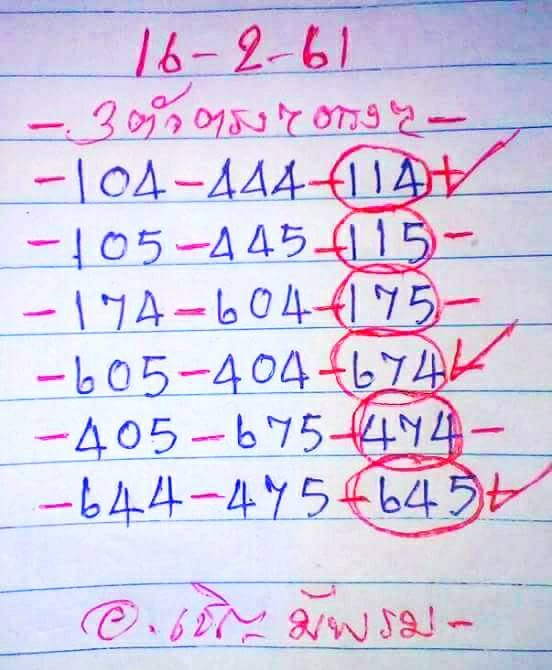 16-2-61
- 3ตัวตรงๆตรงๆ -
-104-444-114-
-105-445-115-
-174-604-175-
-605-404-674-
-405-675-474-
-644-475-645-
อ. มีพรม-